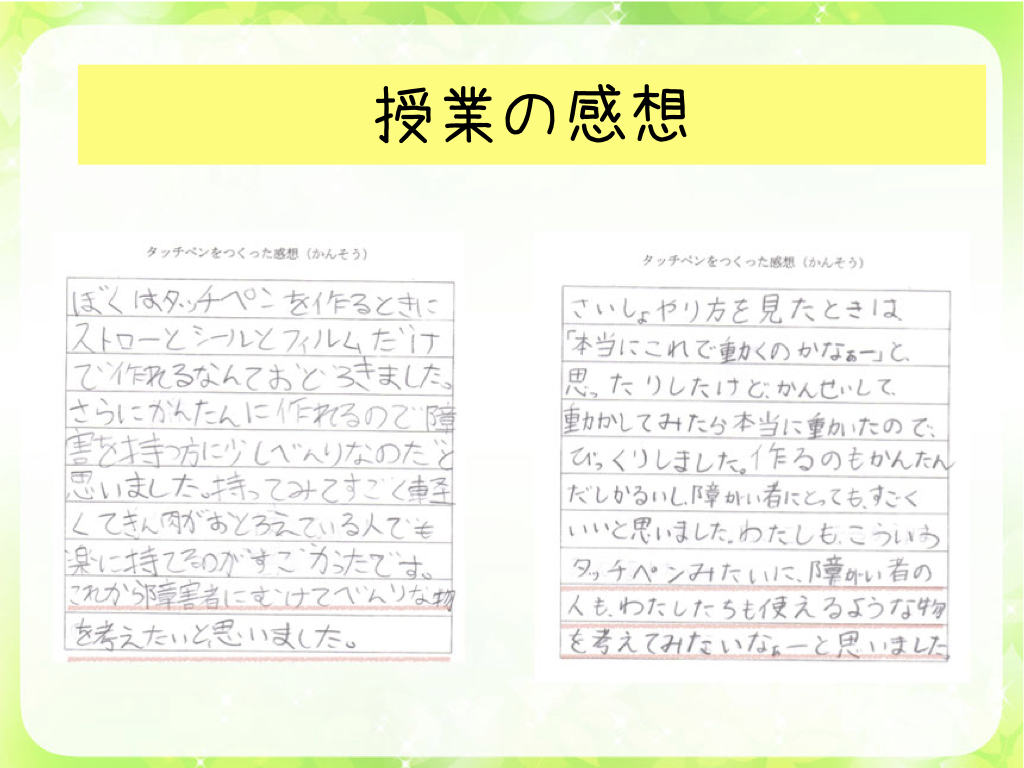 授業の感想
タッチペンをつくった感想（かんそう）
ぼくはタッチペンを作るときに
ストローとシールとフィルムだけ
で作れるなんておどろきました。
さらにかんたんに作れるので障
害を持つ方に少しべんりなのだと
思いました。持ってみてすごく軽
くてきん肉がおとろえている人でも
楽に持てるのがすごかったです。
これから障害者にむけてべんりな物
を考えたいと思いました。
タッチペンをつくった感想（かんそう）
さいしょやり方を見たときは
「本当にこれで動くのかなぁー」と、
思ったりしたけど、かんせいして、
動かしてみたら本当に動いたので、
びっくりしました。作るのもかんたん
だしかるいし、障がい者にとっても、すごく
いいと思いました。わたしも、こういう
タッチペンみたいに、障がい者の
人も、わたしたちも使えるような物
を考えてみたいなぁーと思いました。